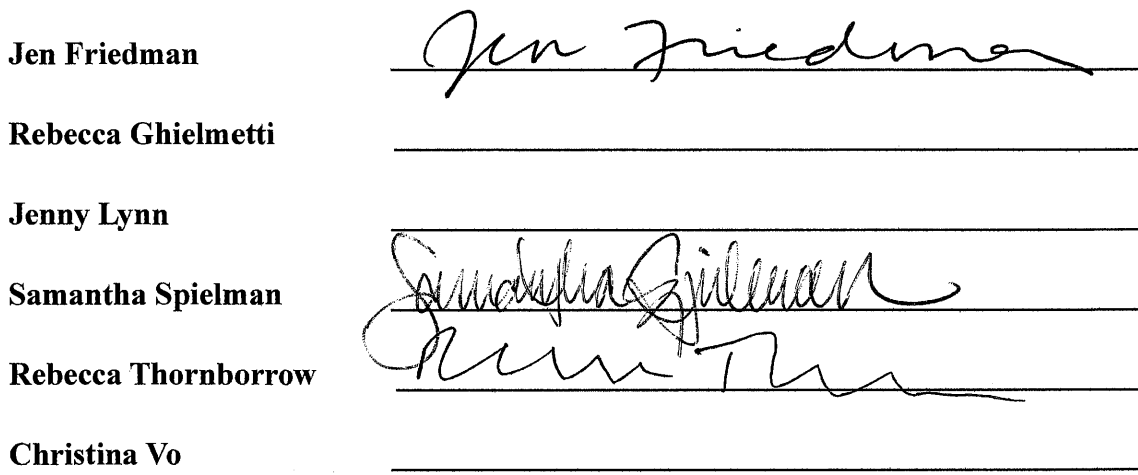 Jen Friedman Jen Friedman
Rebecca Ghielmetti
Jenny Lynn
Samantha Spielman Samantha Spielman
Rebecca Thornborrow
Christina Vo